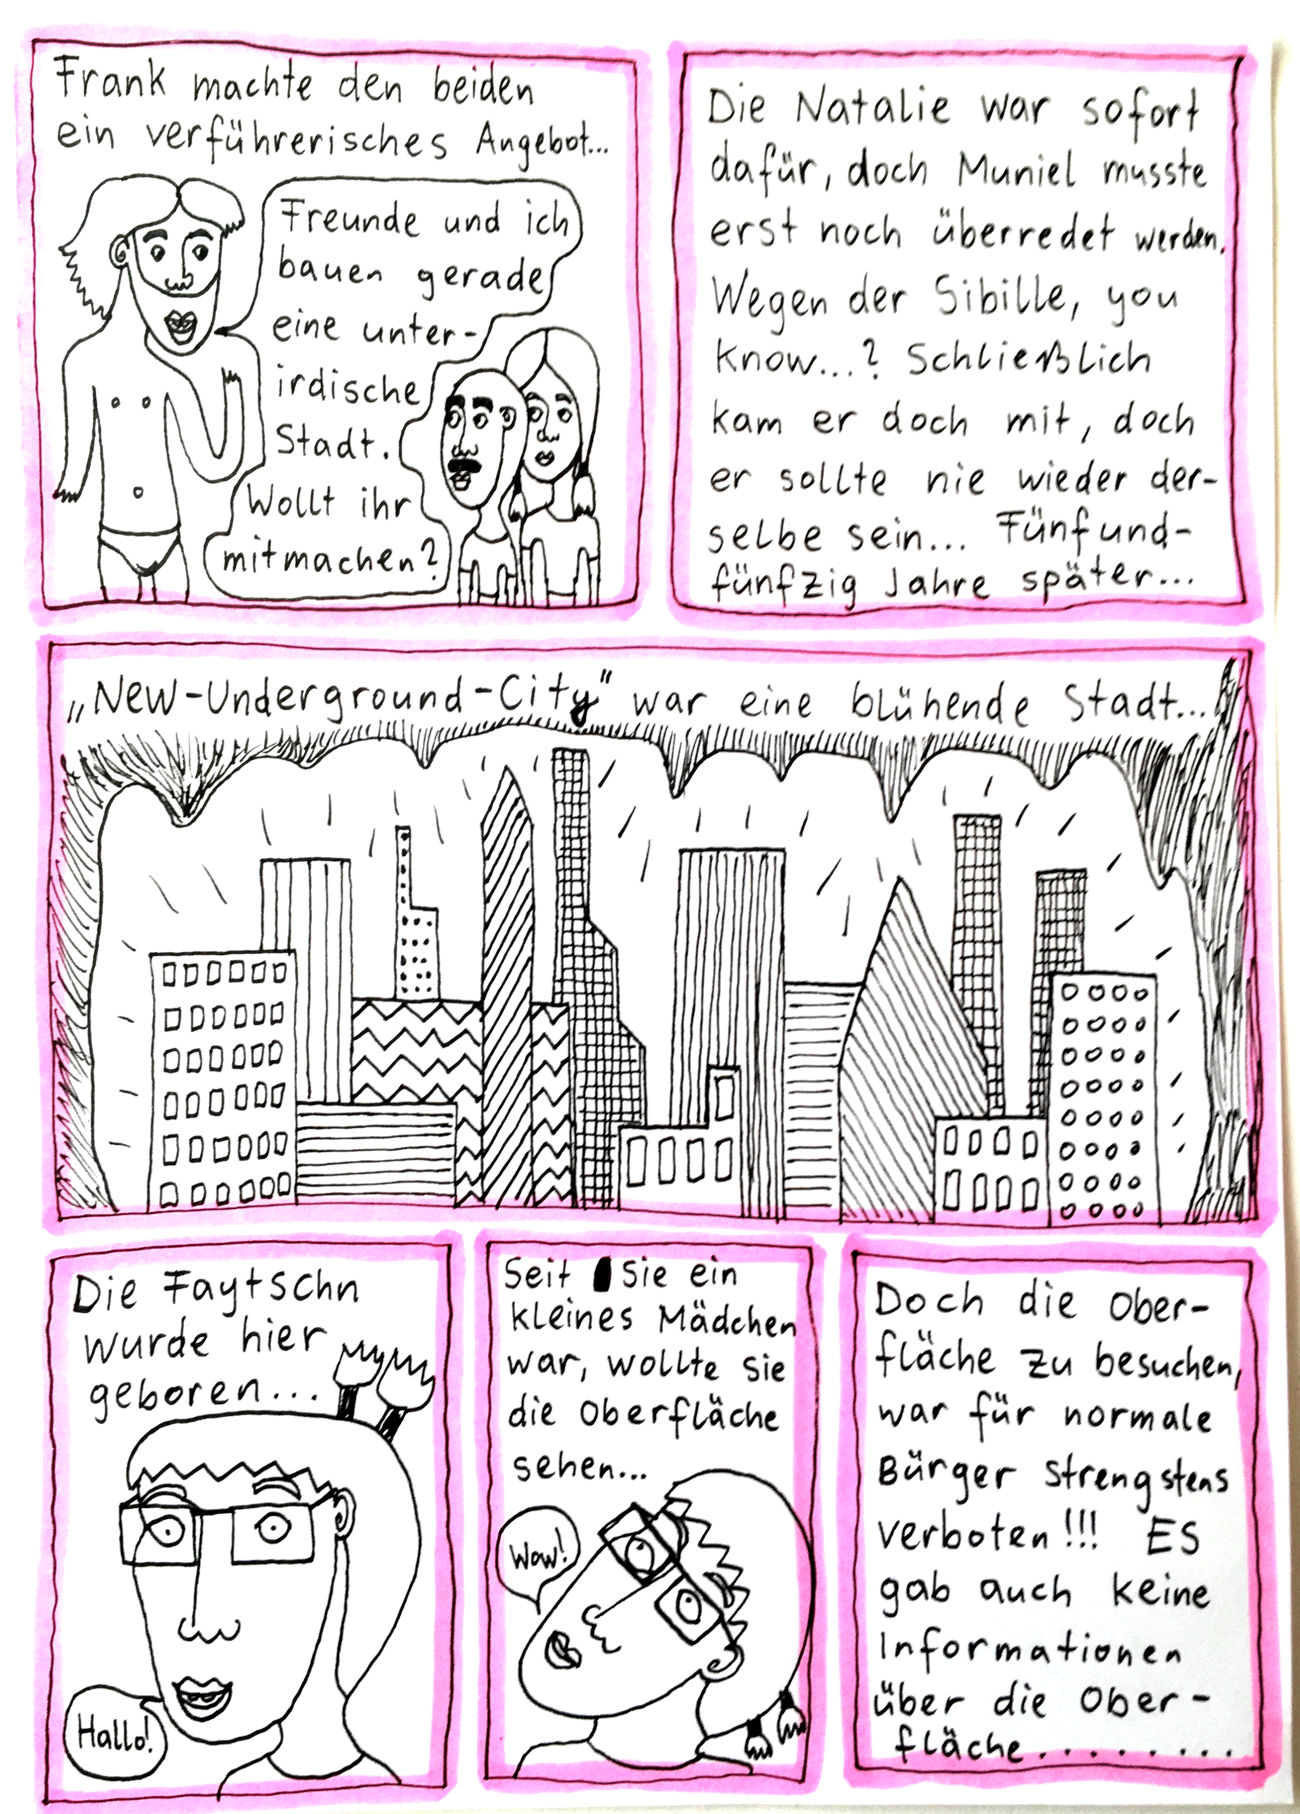 Frank machte den beiden
ein verführerisches Angebot...
Freunde und ich
bauen gerade
eine unter-
irdische
Stadt.
Wollt ihr
mitmachen?
Die Natalie war sofort
dafür, doch Muniel musste
erst noch überredet werden.
Wegen der Sibille, you
know...? Schließlich
kam er doch mit, doch
er sollte nie wieder der-
selbe sein... Fünfund-
fünfzig Jahre später...
„New-Underground-City" war eine blühende Stadt...
Die Faytschn
wurde hier
geboren...
Hallo!
Seit Sie ein
kleines Mädchen
war, wollte sie
die Oberfläche
sehen...
Wow!
Doch die Ober-
fläche zu besuchen,
war für normale
Bürger strengstens
verboten!!! ES
gab auch keine
Informationen
über die Ober-
fläche.........